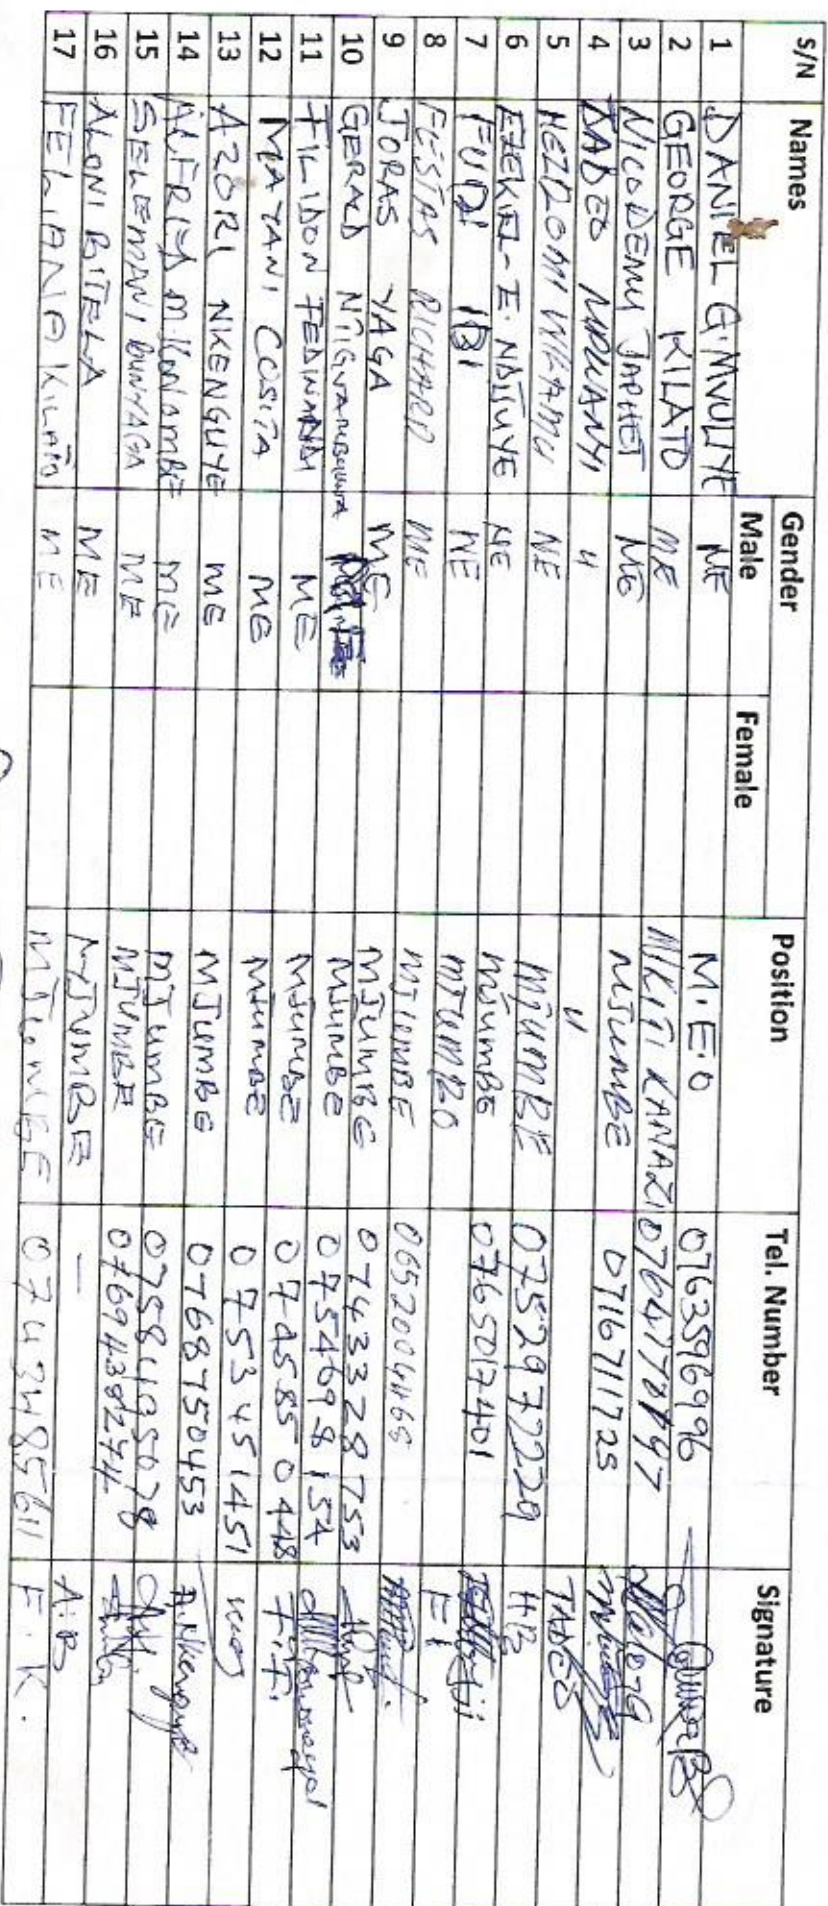 S/N Names Gender Position Tel. Number Signature
Male Female
1 DANIEL G. MVULIYE ME M.E.O 0763596996
2 GEORGE KILATO ME M/KITI KANAZI
3 NICODEMU JAPHET ME MJUMBE 0716711725
4 TADEO MPWANYI " " TADEO
5 HEZRONI NE MJUMBE 0752972229 HB
6 EZEKIEL - E. NDIJUYE ME MJUMBE 0765017401
7 FUDI IBI ME MJUMBO F I
8 FESTAS RICHARD ME MJUMBE
9 JORAS YAGA ME MJUMBE 0743328753
10 GERALD MJUMBE 0754698154
11 FILIDON FEDINANDI ME MJUMBE 0745850448 F.F.
12 MAYANI COSITA ME MJUMBE 0753451451
13 AZORI NKENGUYE ME MJUMBE 0768750453 A.Nkenguye
14 ALFRED M. ME MJUMBE
15 SELEMANI BUNYAGA ME MJUMBE 0769438274
16 ALONI BITELA ME MJUMBE — A.B
17 FELIANO KILATO ME MJUMBE 0743485611 F.K.